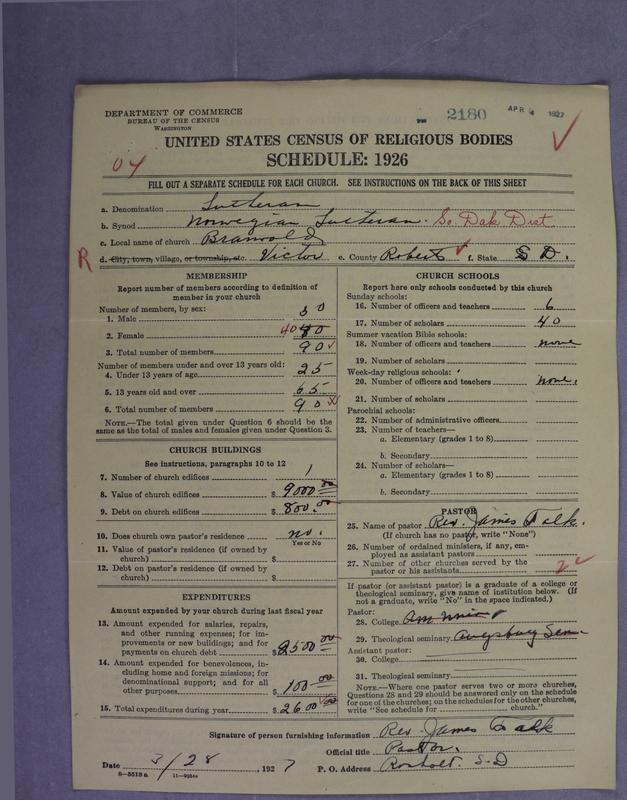 DEPARTMENT OF COMMERCE
BUREAU OF THE CENSUS
WASHINGTON
2180
APR 4 1927
UNITED STATES CENSUS OF RELIGIOUS BODIES
SCHEDULE: 1926
04
FILL OUT A SEPARATE SCHEDULE FOR EACH CHURCH. SEE INSTRUCTIONS ON THE BACK OF THIS SHEET
a. Denomination Lutheran
b. Synod Norwegian Lutheran. So. Dak Dist
c. Local name of church Branvold
R d. City, town, village, or township, etc. Victor e. County Roberts f. State S D.
MEMBERSHIP
Report number of members according to definition of
member in your church
Number of members, by sex:
1. Male 50
2. Female 40
3. Total number of members 90
Number of members under and over 13 years old:
4. Under 13 years of age 25
5. 13 years old and over 65
6. Total number of members 90
NOTE.—The total given under Question 6 should be the
same as the total of males and females given under Question 3.
CHURCH BUILDINGS
See instructions, paragraphs 10 to 12
7. Number of church edifices 1
8. Value of church edifices $ 9000.00
9. Debt on church edifices $ 800.00
10. Does church own pastor's residence? no.
Yes or No
11. Value of pastor's residence (if owned by
church) $
12. Debt on pastor's residence (if owned by
church) $
EXPENDITURES
Amount expended by your church during last fiscal year
13. Amount expended for salaries, repairs,
and other running expenses; for im-
provements or new buildings; and for
payments on church debt $ 2500.00
14. Amount expended for benevolences, in-
cluding home and foreign missions; for
denominational support; and for all
other purposes $ 100.00
15. Total expenditures during year $ 2600.00
CHURCH SCHOOLS
Report here only schools conducted by this church
Sunday schools:
16. Number of officers and teachers 6
17. Number of scholars 40
Summer vacation Bible schools:
18. Number of officers and teachers none
19. Number of scholars
Week-day religious schools:
20. Number of officers and teachers none.
21. Number of scholars
Parochial schools:
22. Number of administrative officers
23. Number of teachers—
a. Elementary (grades 1 to 8)
b. Secondary
24. Number of scholars—
a. Elementary (grades 1 to 8)
b. Secondary
PASTOR
25. Name of pastor Rev. James Falk.
(If church has no pastor, write "None")
26. Number of ordained ministers, if any, em-
ployed as assistant pastors
27. Number of other churches served by the
pastor or his assistants 2
If pastor (or assistant pastor) is a graduate of a college or
theological seminary, give name of institution below. (If
not a graduate, write "No" in the space indicated.)
Pastor:
28. College
29. Theological seminary Augsburg Sem
Assistant pastor:
30. College
31. Theological seminary
NOTE.—Where one pastor serves two or more churches,
Questions 28 and 29 should be answered only on the schedule
for one of the churches; on the schedules for the other churches,
write "See schedule for church."
Signature of person furnishing information Rev. James Falk
Official title Pastor.
Date 3/28, 1927 P. O. Address Rosholt. S-D
8-5518a 11-9204a